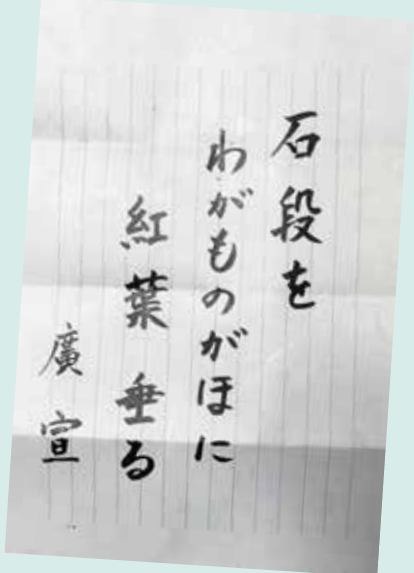 石段を
わがものがほに
紅葉垂る
廣宣